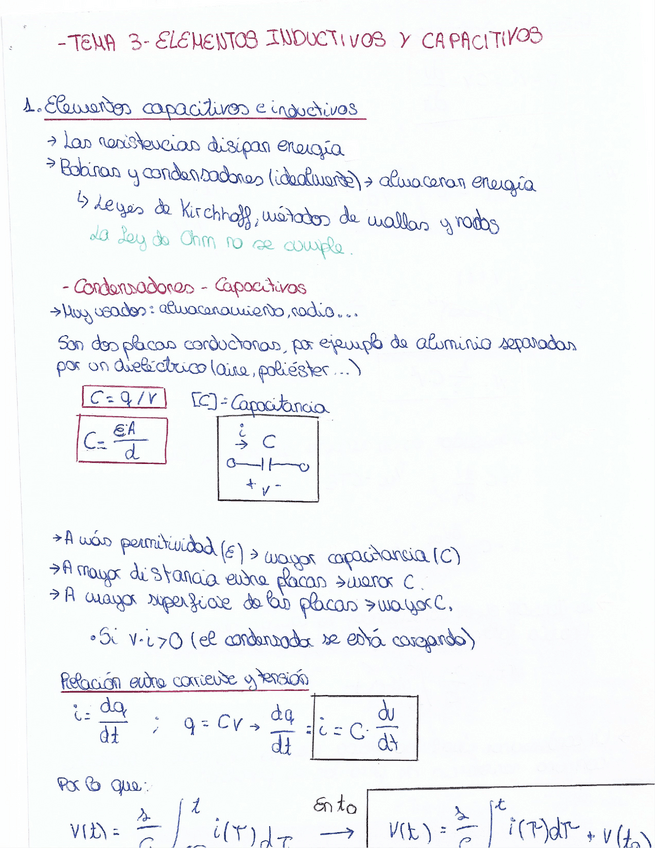 -TEMA 3- ELEMENTOS INDUCTIVOS Y CAPACITIVOS
1. Elementos capacitivos e inductivos
→ Las resistencias disipan energía
→ Bobinas y condensadores (idealmente) → almacenan energía
↳ Leyes de Kirchhoff, métodos de mallas y nodos
La Ley de Ohm no se cumple.
- Condensadores - Capacitivos
→ Muy usados: almacenamiento, radio...
Son dos placas conductoras, por ejemplo de aluminio separadas
por un dieléctrico (aire, poliéster...)
C = q/V [C] = Capacitancia
C = εA/d
i → C
+ v -
→ A más permitividad (ε) → mayor capacitancia (C)
→ A mayor distancia entre placas → menor C.
→ A mayor superficie de las placas → mayor C.
• Si v·i > 0 (el condensador se está cargando)
Relación entre corriente y tensión
i = dq/dt ; q = CV → dq/dt = i = C · dv/dt
Por lo que:
En t₀
V(t) = 1/C ∫ t i(τ)dτ → V(t) = 1/C ∫ t i(τ)dτ + V(t₀)